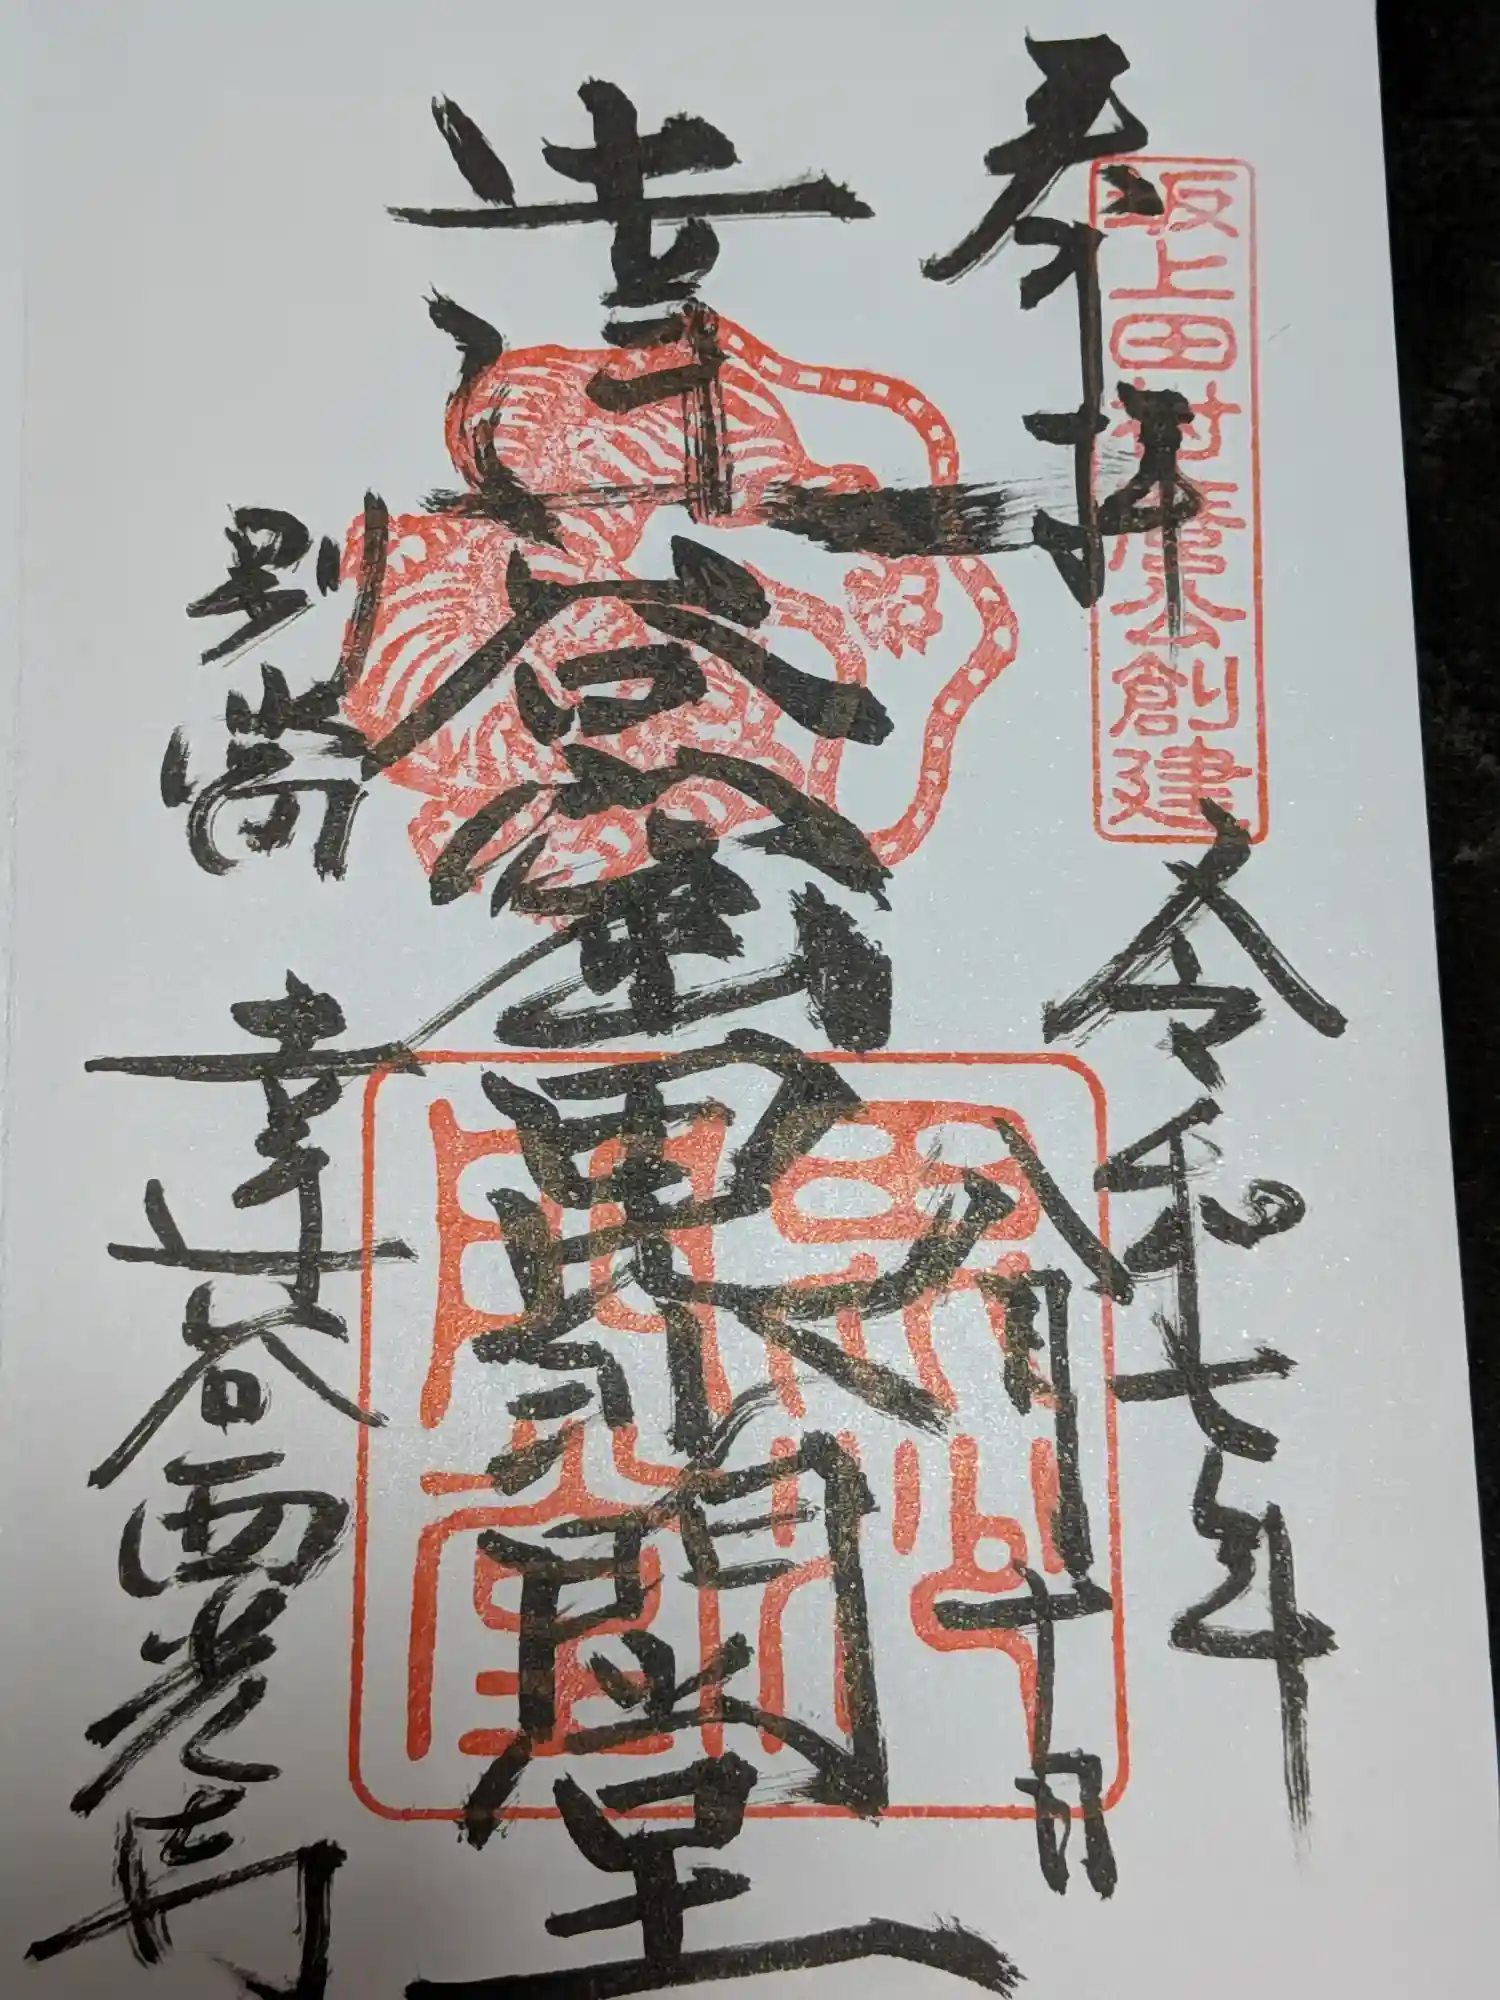 奉拝
坂上田村麿公創建
令和七年
八月十日
達谷窟毘沙門堂
別當
達谷西光寺